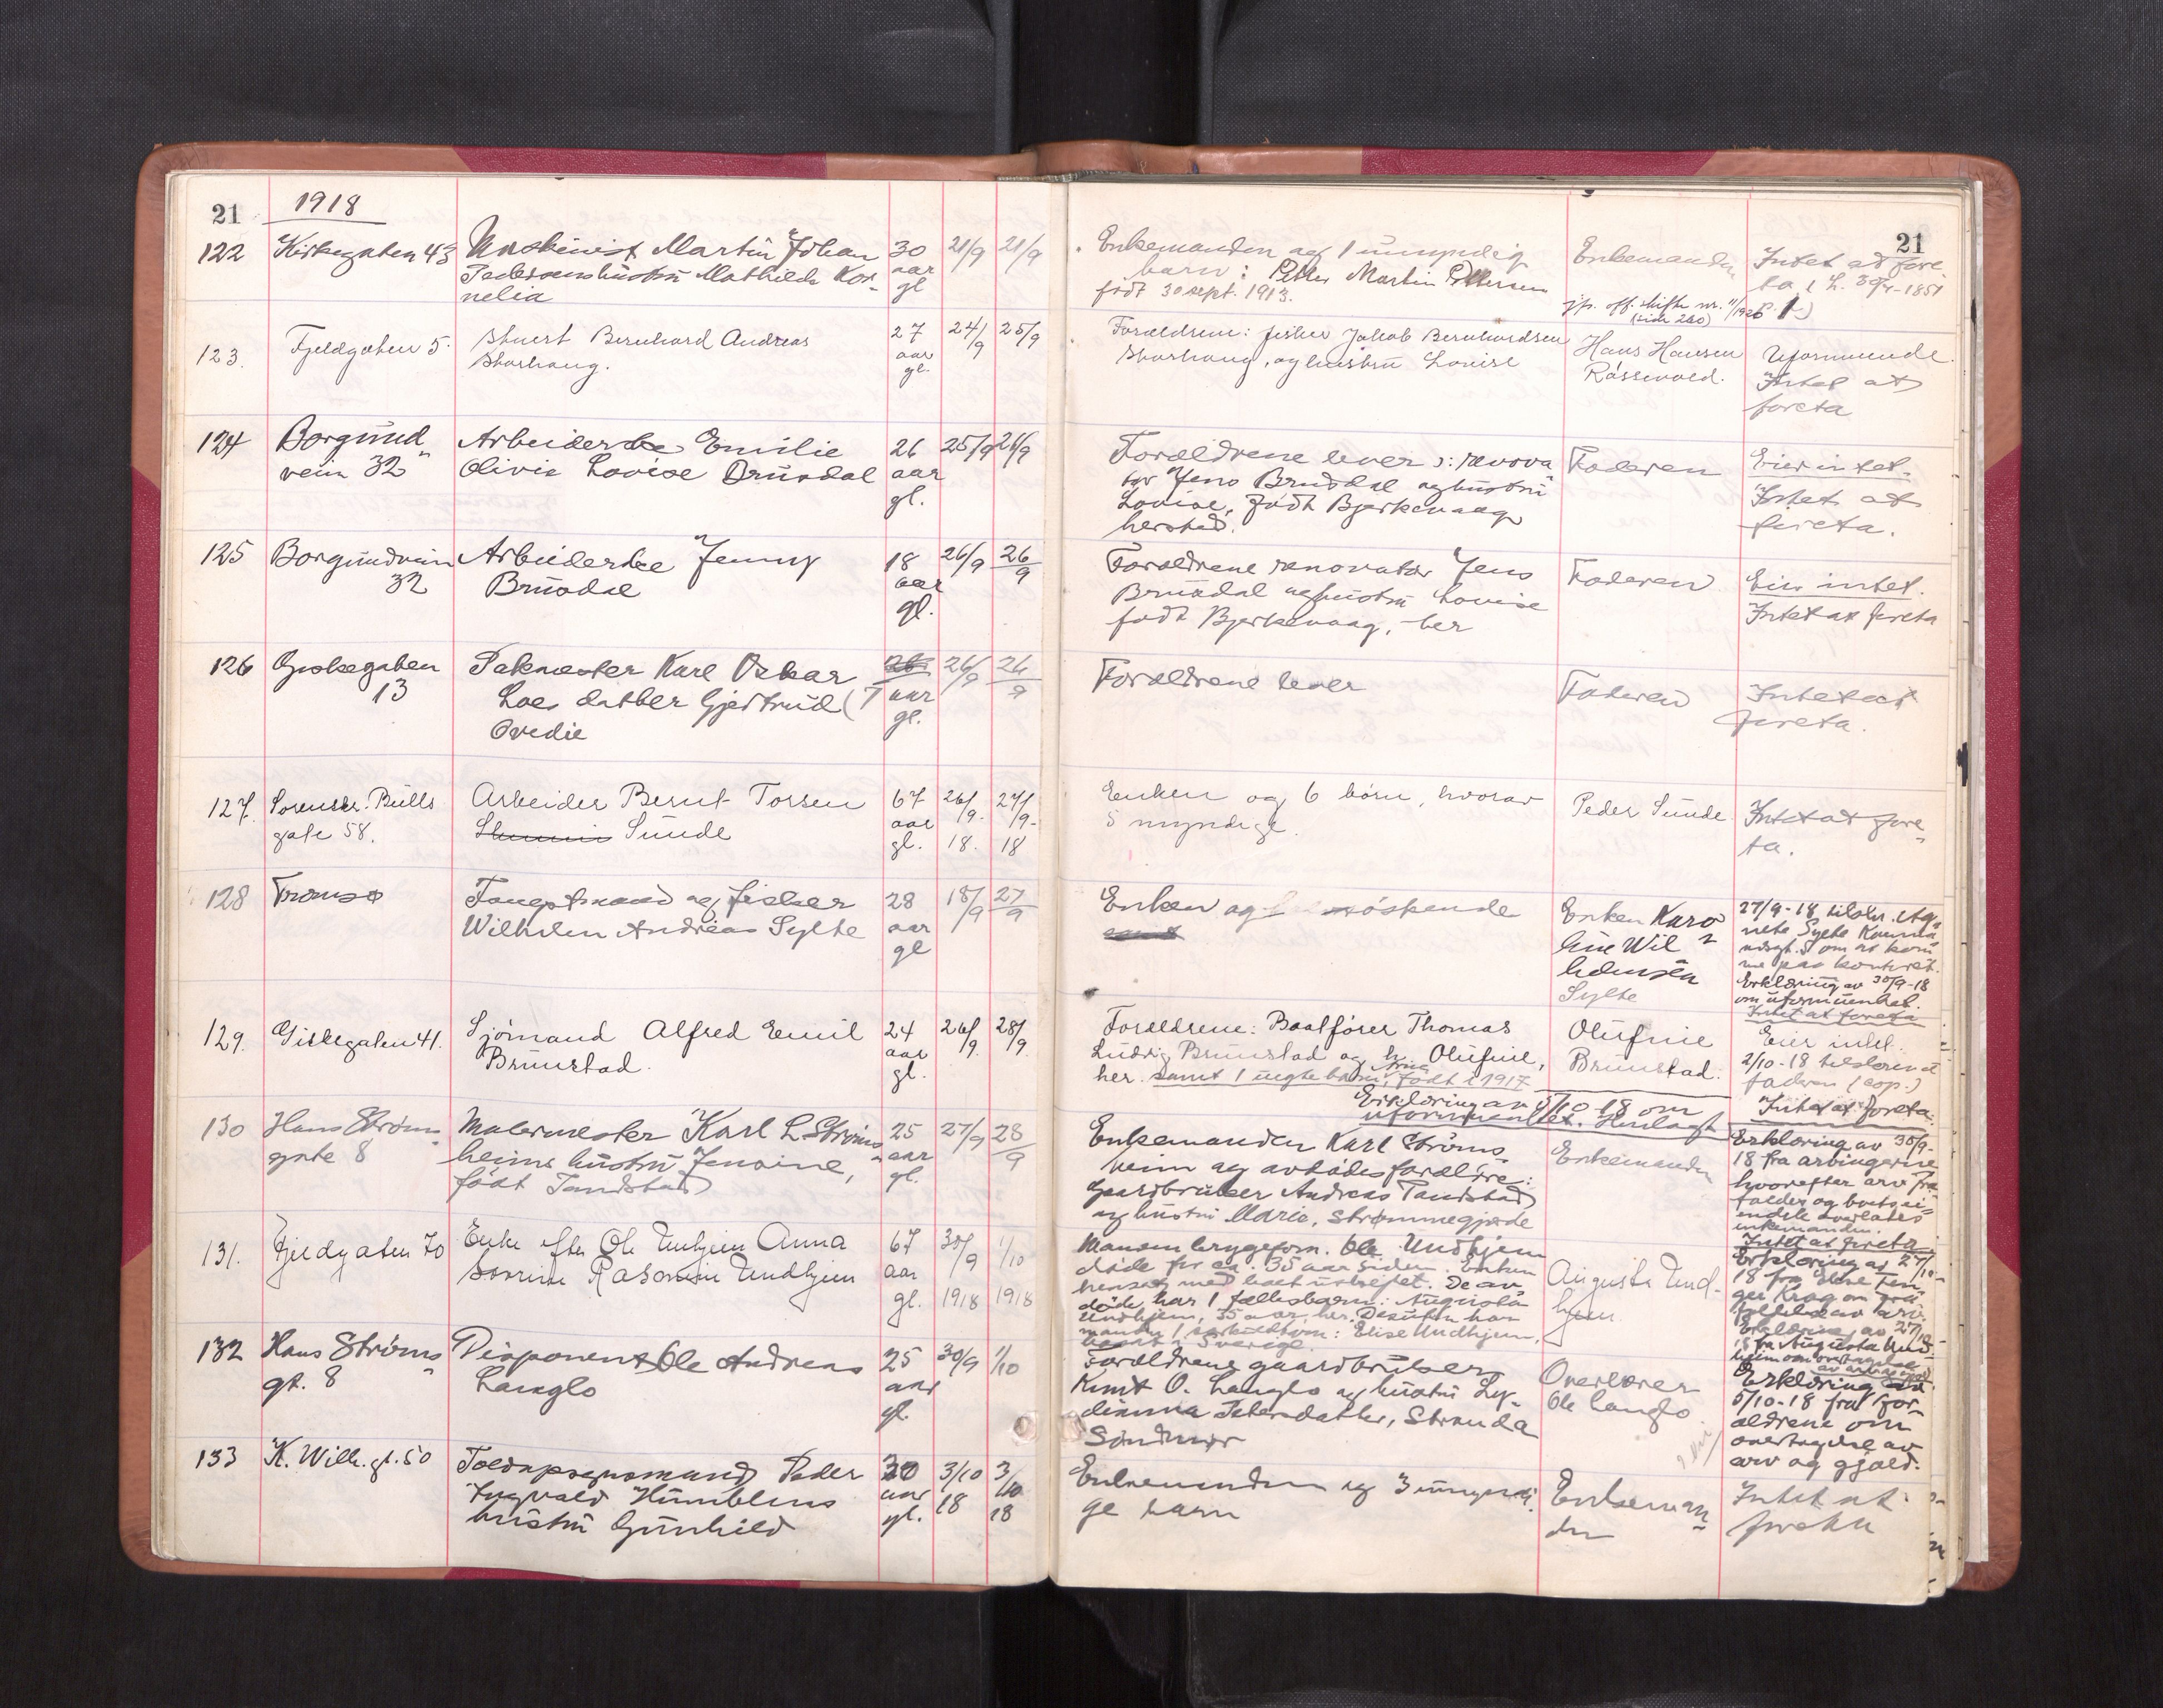 21 1918
122 Kirkegaten 43 Maskinist Martin Johan 30 21/9 21/9
Pedersens hustru Mathilde Kor- aar
nelia gl
123. Fjeldgaten 5. Stuert Bernhard Andreas 27 24/9 25/9
Storhaug. aar
gl.
124 Borgund- Arbeiderske Emilie 26 25/9 26/9
vein 32 Olivia Lovise Brusdal aar
gl.
125 Borgundvein Arbeiderske Jenny 18 26/9 26/9
32 Brusdal aar
gl.
126 Giskegaten Sakfører Karl Oskar 26/9 26/9
13 Loes datter Gjertrud (7 aar
Ovedie gl.
127. Sorenskr. Bulls Arbeider Bernt Torsen 67 26/9. 27/9.
gate 58. Sunde aar
gl. 18. 18
128 Tromsø Fangstmand og fisker 28 18/9 27/9
Wilhelm Andreas Sylte aar
gl
129. Giskegaten 41. Sjömand Alfred Emil 24 26/9. 28/9.
Brunstad. aar
gl.
130 Hans Ströms Malermester Karl L. Ströms- 25 27/9 28/9
gate 8 heims hustru Jensine, aar
født Tandstad gl.
131. Fjeldgaten 70 Enke efter Ole Undhjem Anna 67 30/9 1/10
Sovrine Rasmine Undhjem aar
gl. 1918 1918
132 Hans Ströms Disponent Ole Andreas 25 30/9 1/10
gt. 8 Langlo aar
gl.
133 K. Wilh. gt. 50 Toldopsynsmand Peder 30 3/10 3/10
Ingvald Humblens aar 18 18
hustru Gunhild gl.
21
Enkemanden og 1 umyndig Enkemanden Intet at fore-
barn: Petter Martin Pettersen ta (L. 30/7-1851
født 30 sept. 1913. jfr. off. skifte nr. 11/1926 § 1)
(side 260)
Forældrene: fisker Jakob Bernhardsen Hans Hansen Uformuende.
Storhaug, og hustru Lovise Råssevold. Intet at
foreta
Forældrene lever: renova- Faderen Eier intet.
tør Jens Brusdal og hustru Intet at
Lovise, født Bjerkevaag foreta.
hersted.
Forældrene renovatør Jens Faderen Eier intet.
Brusdal og hustru Lovise Intet at foreta
født Bjerkevaag, her
Forældrene lever Faderen Intet at
foreta.
Enken og 6 börn, hvorav Peder Sunde. Intet at fore-
5 myndige. ta.
Enken og søskende Enken Karo- 27/9-18 tilskr. Ag-
line Wil- nete Sylte
helmsen om at kom-
Sylte me paa kontoret.
Erklæring av 30/9-18
om uformuenhet.
Intet at foreta
Forældrene: Baatfører Thomas Olufine Eier intet.
Ludvig Brunstad og h. Olufine, Brunstad. 2/10-18 tilskrevet
her. samt 1 uegte barn, Arna født i 1917 faderen (cop.)
Erklæring av 5/10 18 om Intet at foreta.
uformuenhet. Henlagt
Enkemanden Karl Ströms- Enkemanden Erklæring av 30/9-
heim og avdødes forældre: 18 fra arvingerne
Gaardbruker Andreas Tandstad hvorefter arv fra-
og hustru Marie, Strømmegjerde faldes og boets ei-
endele overlates
enkemanden.
Intet at foreta
Manden bryggeform. Ole Undhjem Augusta Und- Erklæring av 27/10-
døde for ca. 35 aar siden. Enken hjem. 18 fra Elise
hensat med boet uskiftet. De av- Krag om fra-
døde har 1 fællesbarn: Augusta faldelse av arv.
Undhjem, 35 aar, her. Desuten har Erklæring av 27/10-
manden 1 særkuldbarn: Elise Undhjem, 18 fra Augusta Und-
bosat i Sverige. hjem om overtagelse
av arv og gjæld.
Forældrene gaardbruker Overlærer Erklæring av
Knut O. Langlo og hustru Ly- Ole Langlo. 5/10-18 fra for-
dianna Petersdatter, Stranda ældrene om
Søndmør overtagelse av
arv og gjæld.
Enkemanden og 3 umyndi- Enkeman- Intet at
ge barn den foreta